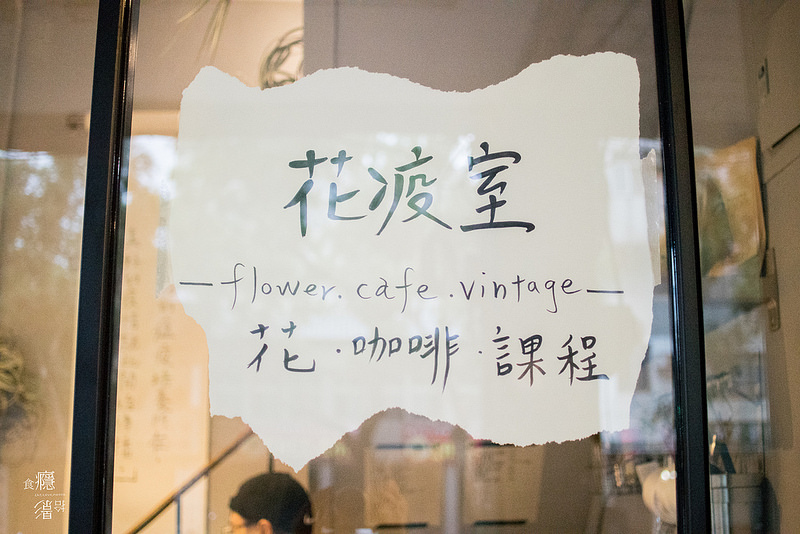 花疫室
—flower.cafe.vintage—
花·咖啡·課程
食癮